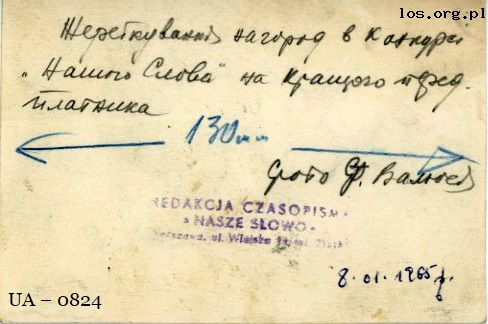 los.org.pl
Жеребкування нагород в Конкурсі
„Нашого Слова" на кращого перед-
платника
130 mm
Фото Ф.
REDAKCJA CZASOPISMA
»NASZE SŁOWO«
Warszawa, ul. Wiejska
8.01.1965 г.
UA – 0824